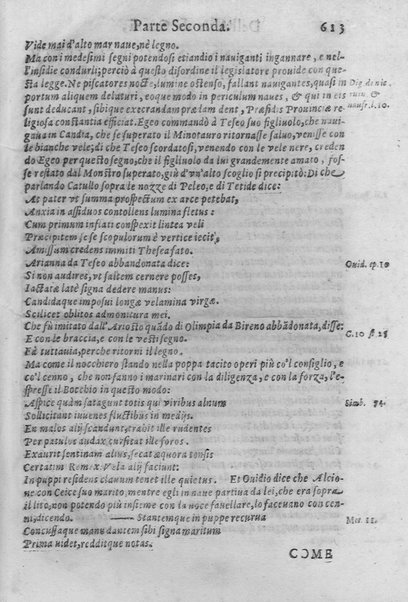 Parte Seconda. 613
Vide mai d'alto mar naue, nè legno.
Ma con i medesimi segni potendosi etiandio i nauiganti ingannare, e nel-
l'insidie condurli; perciò a questo disordine il legislatore prouide con que-
sta legge. Ne piscatores nocte, lumine ostenso, fallant nauigantes, quasi in
portum aliquem delaturi, eoque modo in periculum naues, & qui in eis
sunt deducant, sibique execrandam prædam dent, Præsidis Prouinciæ re-
ligiosa constantia efficiat. Egeo commandò à Teseo suo figliuolo, che naui-
gaua in Candia, che se superato il Minotauro ritornasse saluo, venisse con
le bianche vele; di che Teseo scordatosi, venendo con le vele nere, creden-
do Egeo per questo segno, che il figliuolo da lui grandemente amato, fos-
se restato dal Monstro superato, giù d'vn'alto scoglio si precipitò: Di che
parlando Catullo sopra le nozze di Peleo, e di Tetide dice:
At pater vt summa prospectum ex arce petebat,
Anxia in assiduos contollens lumina fletus:
Cum primum inflati conspexit lintea veli
Præcipitem se se scopulorum è vertice iecit,
Amissum credens immiti Thesea fato.
Arianna da Teseo abbandonata dice:
Si non audires, vt saltem cernere posses,
Iactatæ latè signa dedere manus:
Candidaque imposui longæ velamina virgæ.
Scilicet oblitos admonitura mei.
Che fù imitato dall'Ariosto quãdo di Olimpia da Bireno abbãdonata, disse:
E con le braccia, e con le vesti segno.
Fà tuttauia, perche ritorni il legno.
Ma come il nocchiero stando nella poppa tacito operi più co'l consiglio, e
co'l cenno, che non fanno i marinari con la diligenza, e con la forza, l'e-
spresse il Bocchio in questo modo:
Aspice quàm satagunt totis qui viribus alnum
Sollicitant iuuenes fluctibus in medijs.
En malos alij scandunt; trabit ille rudentes
Per patulos audax cursitat ille foros.
Exaurit sentinam alius, secat æquora tonsis
Certatim Remex. Vela alij faciunt:
In puppi residens clauum tenet ille quietus. Et Ouidio dice che Alcio-
ne con Ceice suo marito, mentre egli in naue partiua da lei, che era sopra
il lito, non potendo più insieme con la voce fauellare, lo faceuano con cen-
ni, dicendo. —— Stantemque in puppe recurua
Concussaque manu dantem sibi signa maritum
Prima videt, redditque notas.
COME
Dig. de in-
&
naufr. l. 10.
Ouid. ep. 10
C. 10 st 25
Simb. 54.
Met. 11.